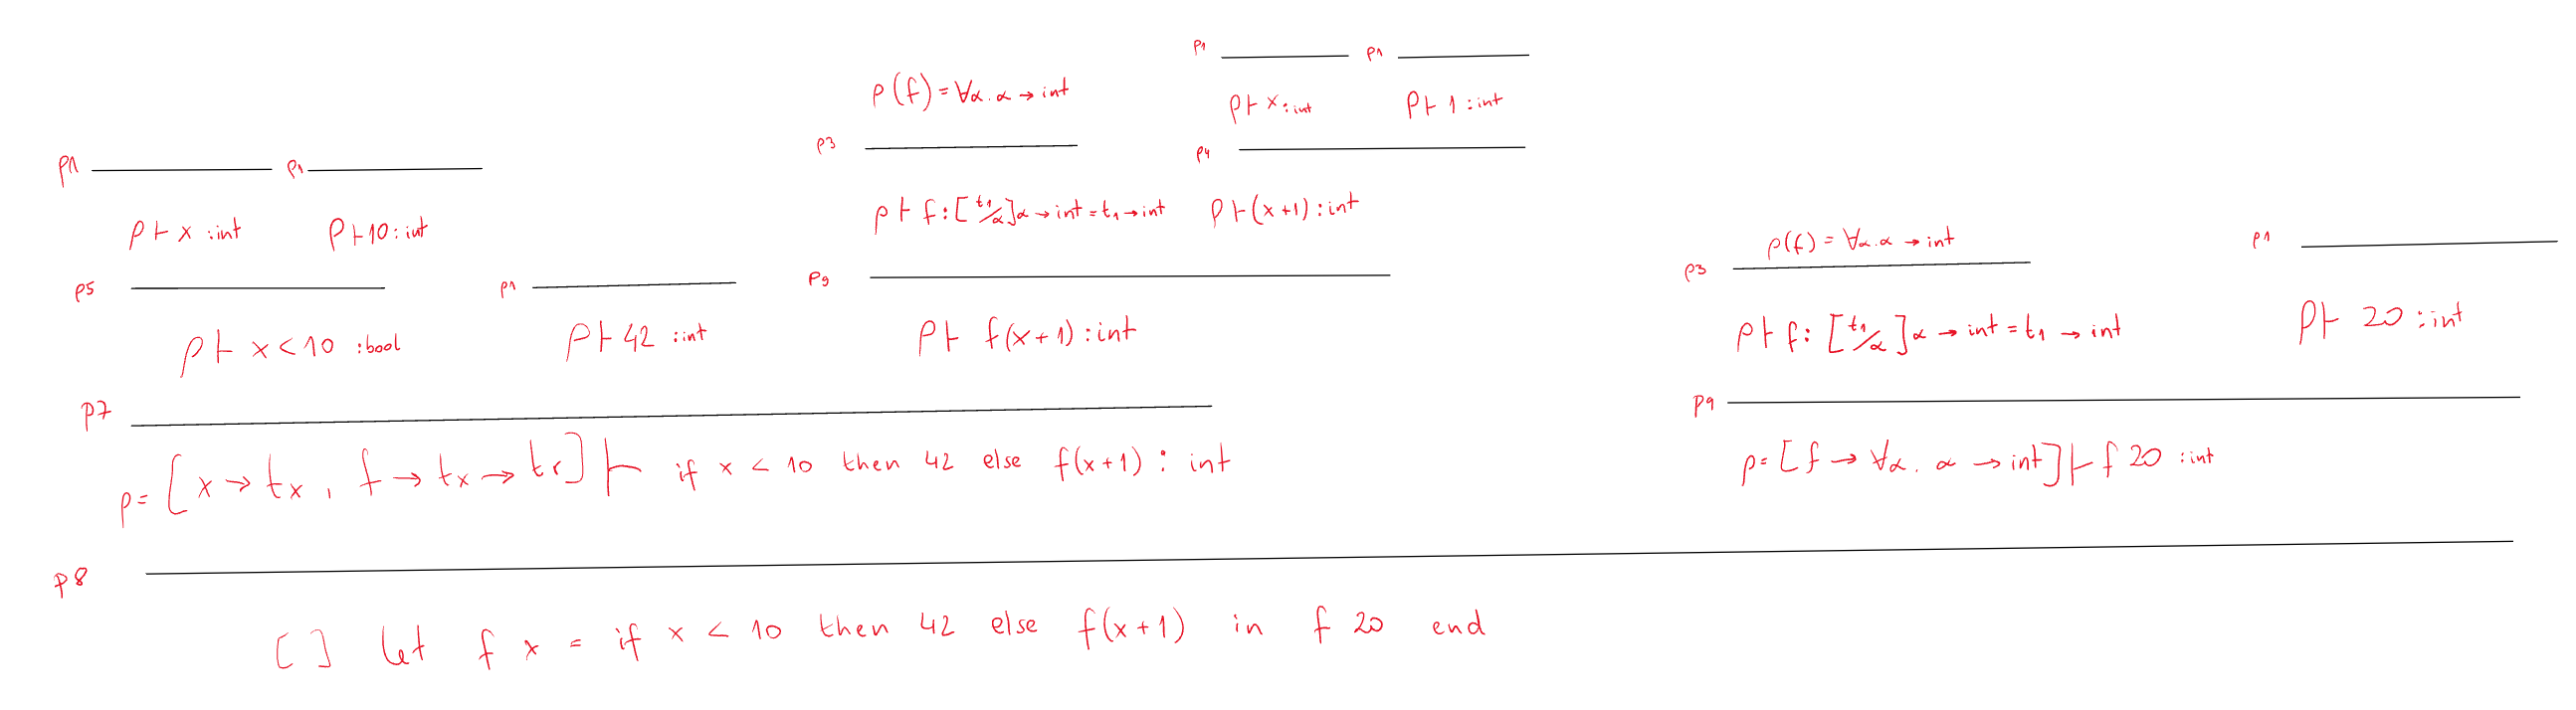 p1 p1
ρ(f) = ∀α. α → int
ρ ⊢ x : int ρ ⊢ 1 : int
p1 p1 p3 p4
ρ ⊢ x : int ρ ⊢ 10 : int ρ ⊢ f : [t₁/α] α → int = t₁ → int ρ ⊢ (x+1) : int
ρ(f) = ∀α. α → int
p5 p1 p9 p3 p1
ρ ⊢ x < 10 : bool ρ ⊢ 42 : int ρ ⊢ f(x+1) : int ρ ⊢ f : [t₁/α] α → int = t₁ → int ρ ⊢ 20 : int
p7 p9
ρ = [x → tₓ, f → tₓ → tᵣ] ⊢ if x < 10 then 42 else f(x+1) : int ρ = [f → ∀α. α → int] ⊢ f 20 : int
p8
[ ] let f x = if x < 10 then 42 else f(x+1) in f 20 end